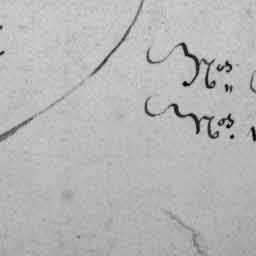 Nos„
Nos.